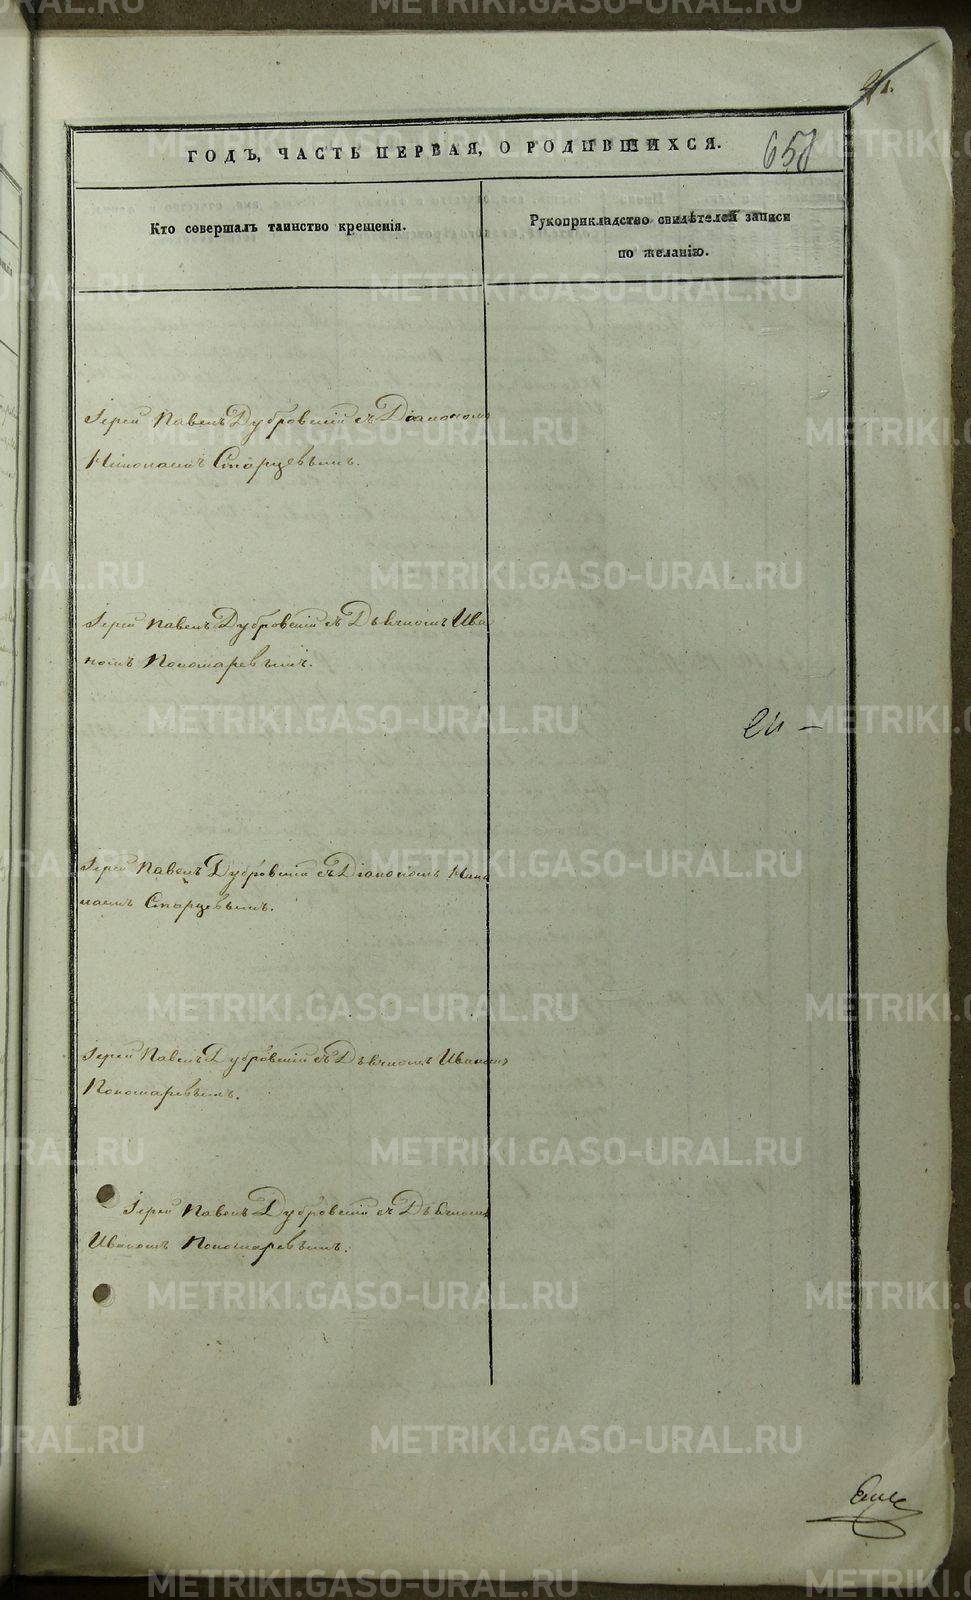 ГОДЪ, ЧАСТЬ ПЕРВАЯ, О РОДИВШИХСЯ.
658
Кто совершалъ таинство крещенія.
Рукоприкладство свидѣтелей записи
по желанію.
Іерей Павелъ Дубровский съ Діакономъ
Николаемъ Старцевымъ.
Іерей Павелъ Дубровскій съ Дьячкомъ Ива
номъ Пономаревымъ.
Іерей Павелъ Дубровскій съ Діакономъ Нико
лаемъ Старцевымъ.
Іерей Павелъ Дубровскій съ Дьячкомъ Иваномъ
Пономаревымъ.
Іерей Павелъ Дубровскій съ Дьячкомъ
Иваномъ Пономаревымъ.
METRIKI.GASO-URAL.RU